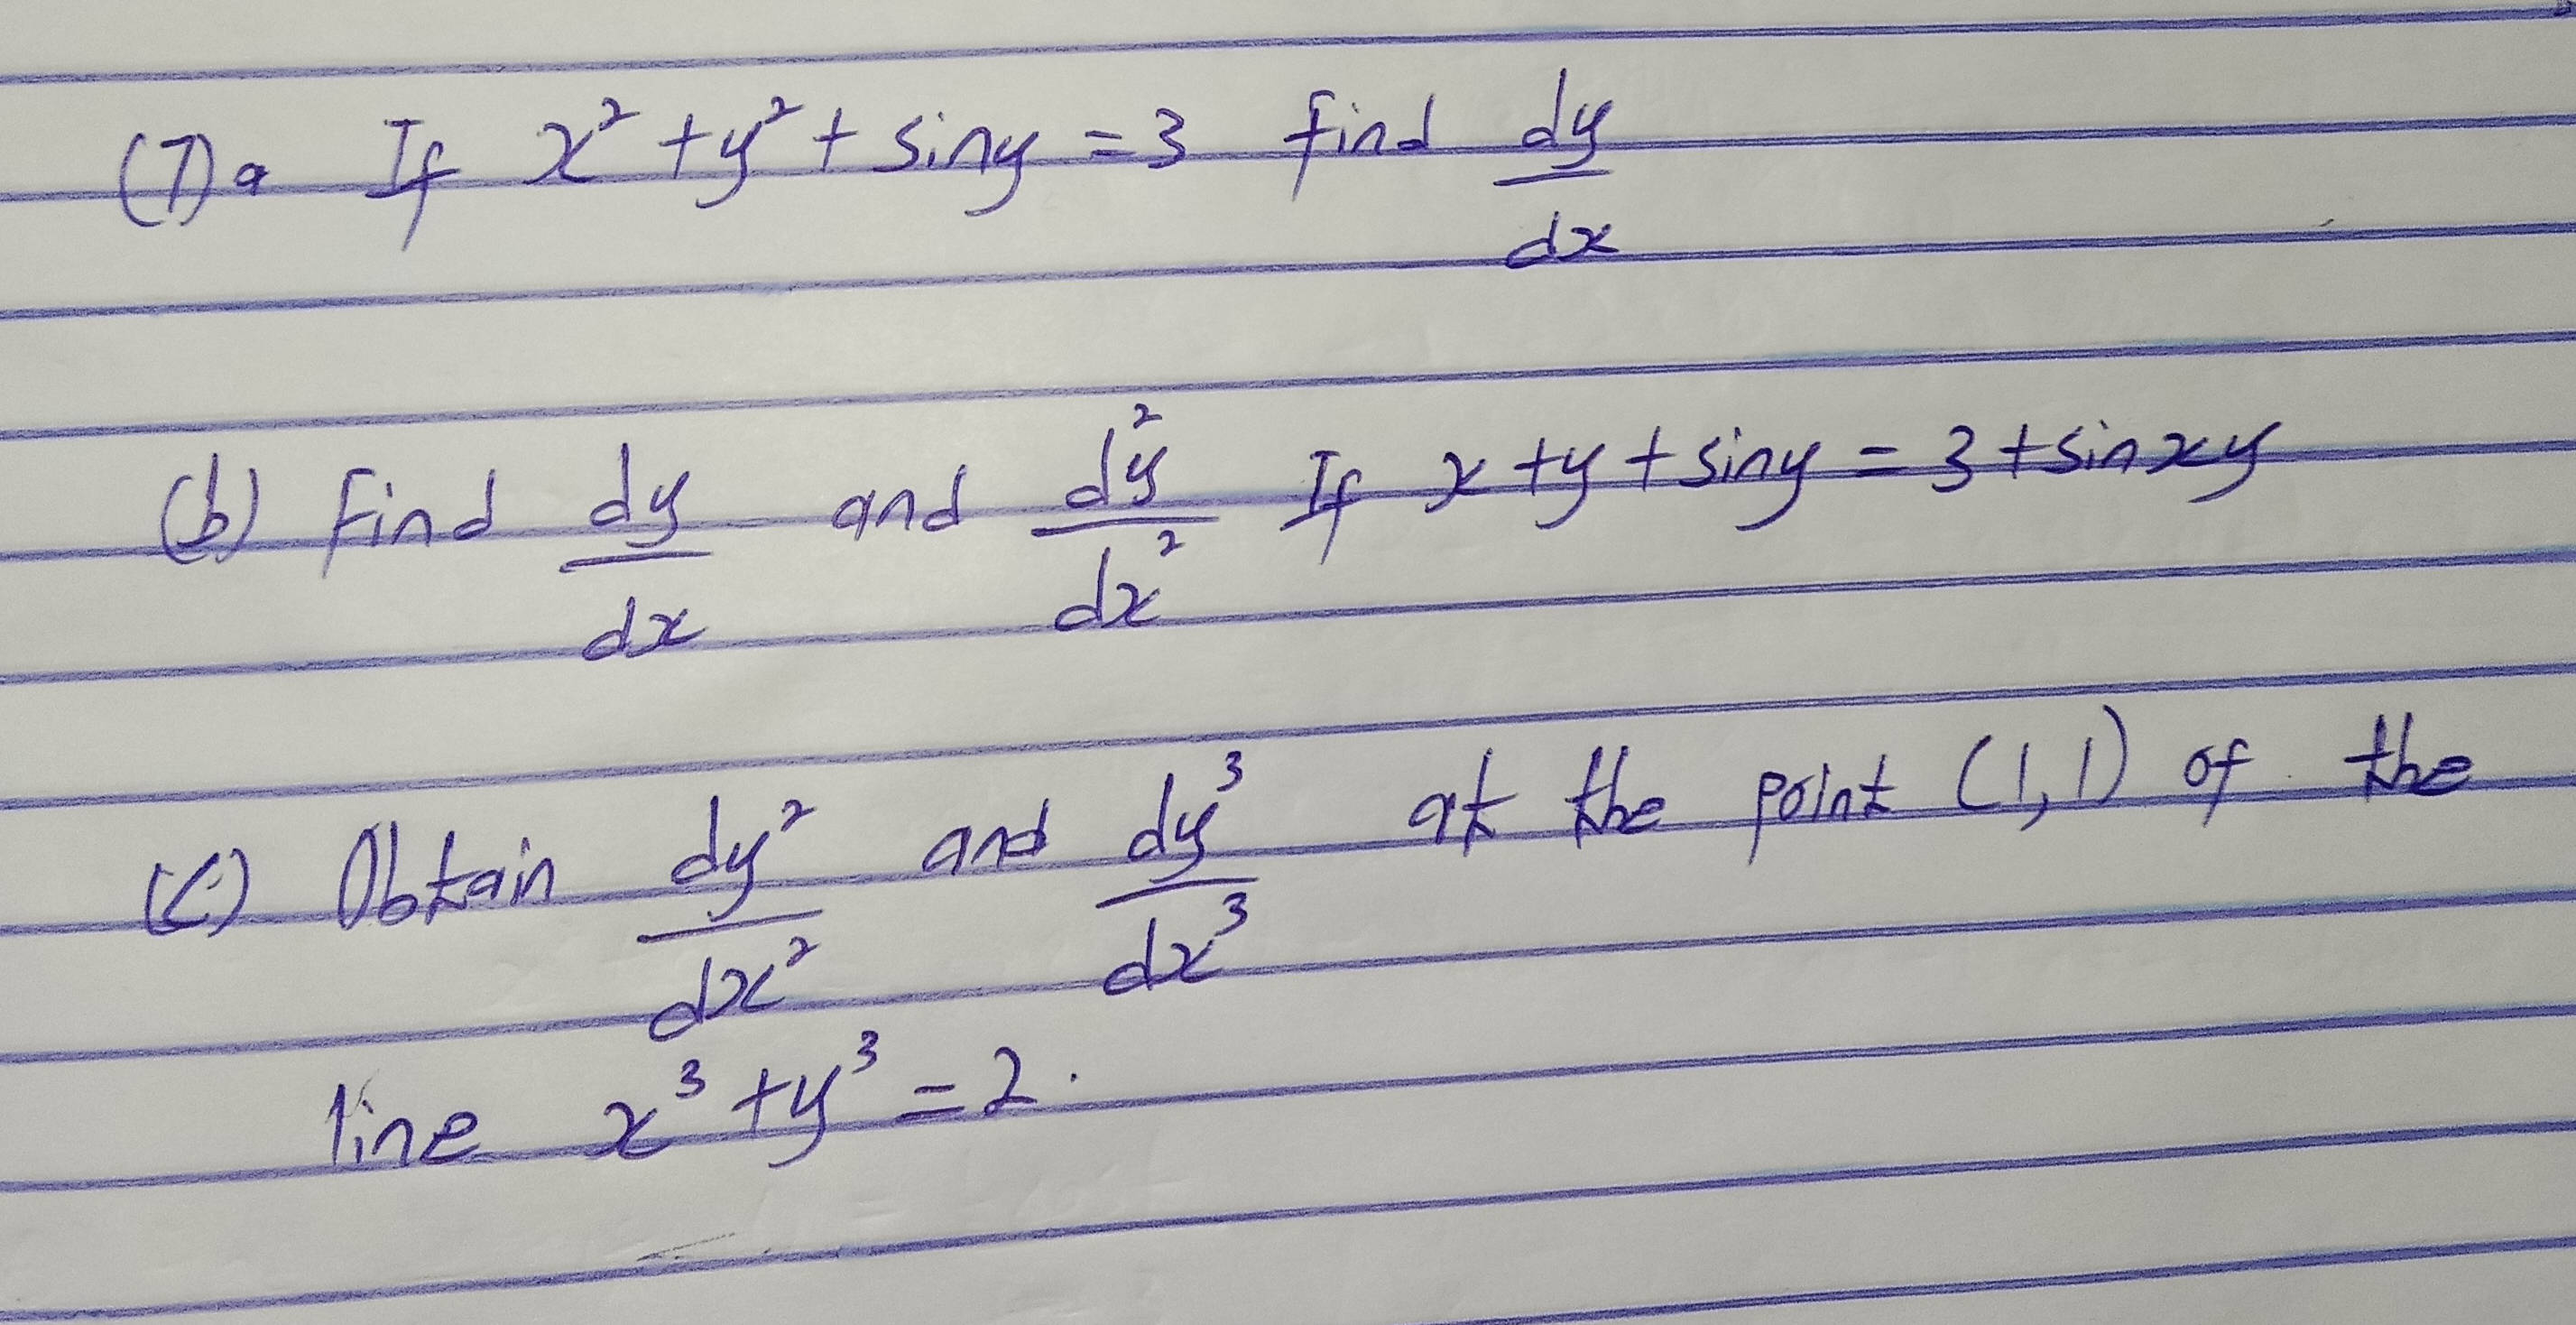 (7)a If x² + y² + siny = 3 find dy/dx
(b) Find dy/dx and d²y/dx² If x + y + siny = 3 + sinxy
(c) Obtain dy²/dx² and dy³/dx³ at the point (1,1) of the
line x³ + y³ = 2.